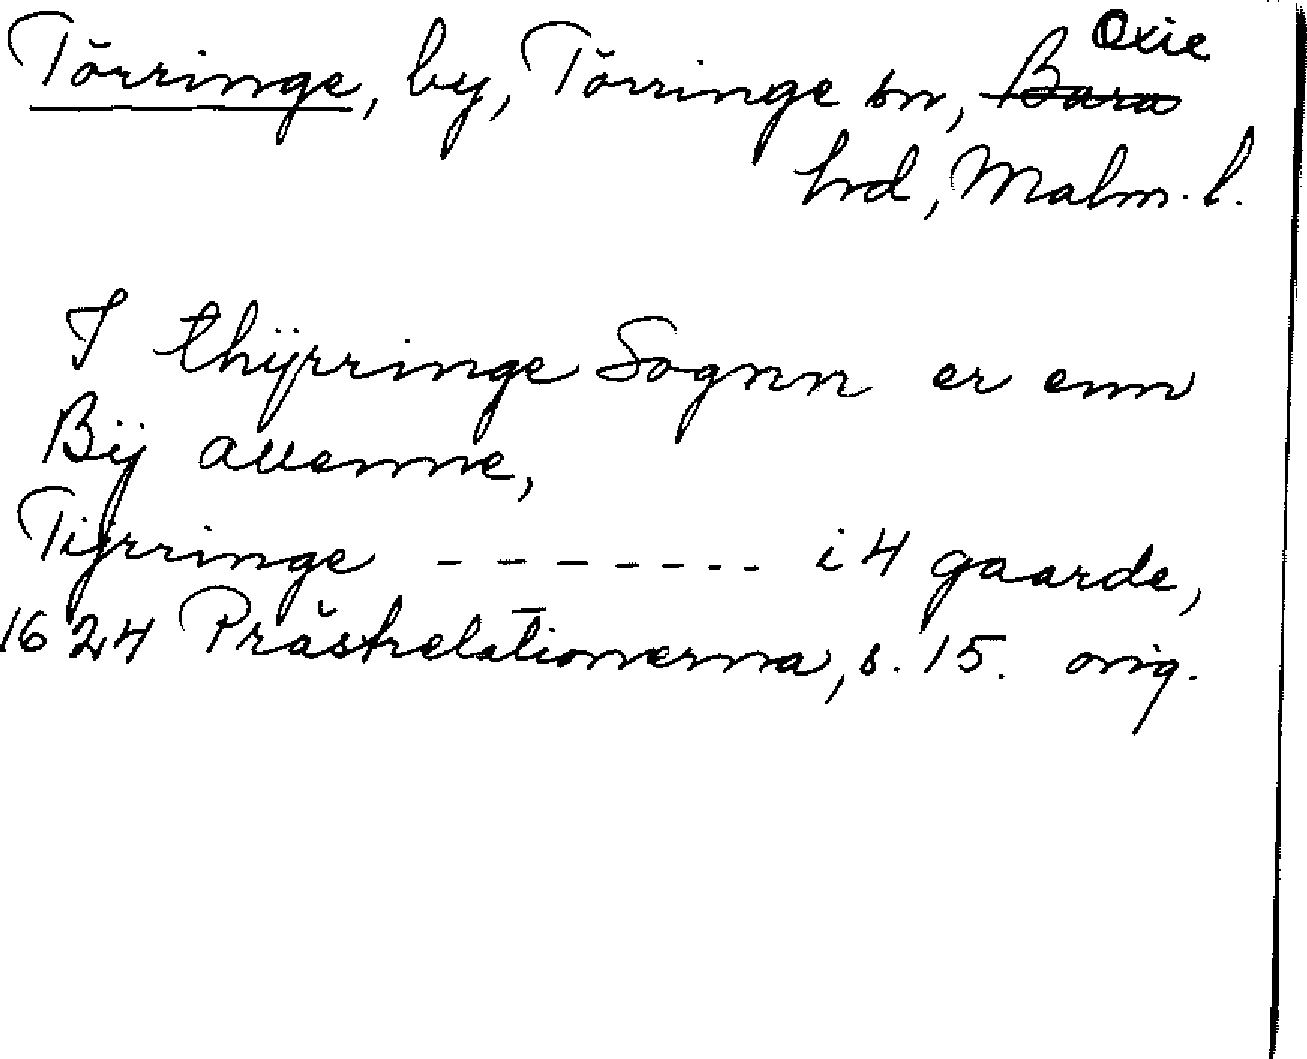 Törringe, by, Törringe sn, ~~Bara~~ Oxie
hrd, Malm. l.
I thÿrringe Sognn er enn
Bÿ alleenne,
Tÿrringe - - - - - - - - i 4 gaarde,
1624 Prästrelationerna, s. 15. orig.